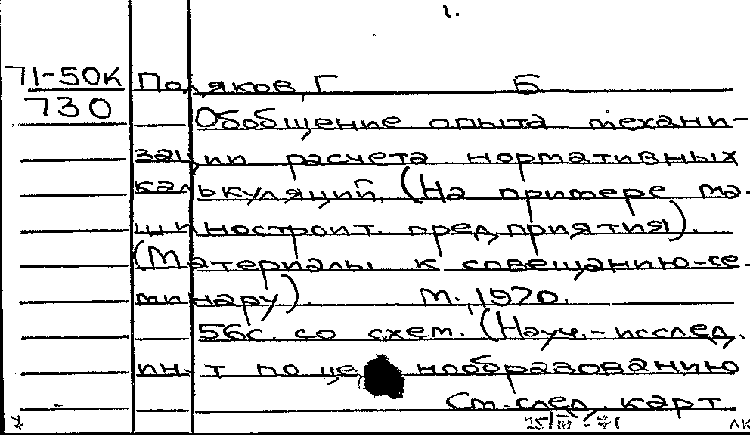 1.
71-50к Поляков, Г Б
730 Обобщение опыта механи-
зации расчета нормативных
калькуляций. (На примере ма-
шиностроит. предприятия).
(Материалы к совещанию-се-
минару). М., 1970.
56с. со схем. (Науч.-исслед.
ин-т по ценообразованию
См. след. карт.